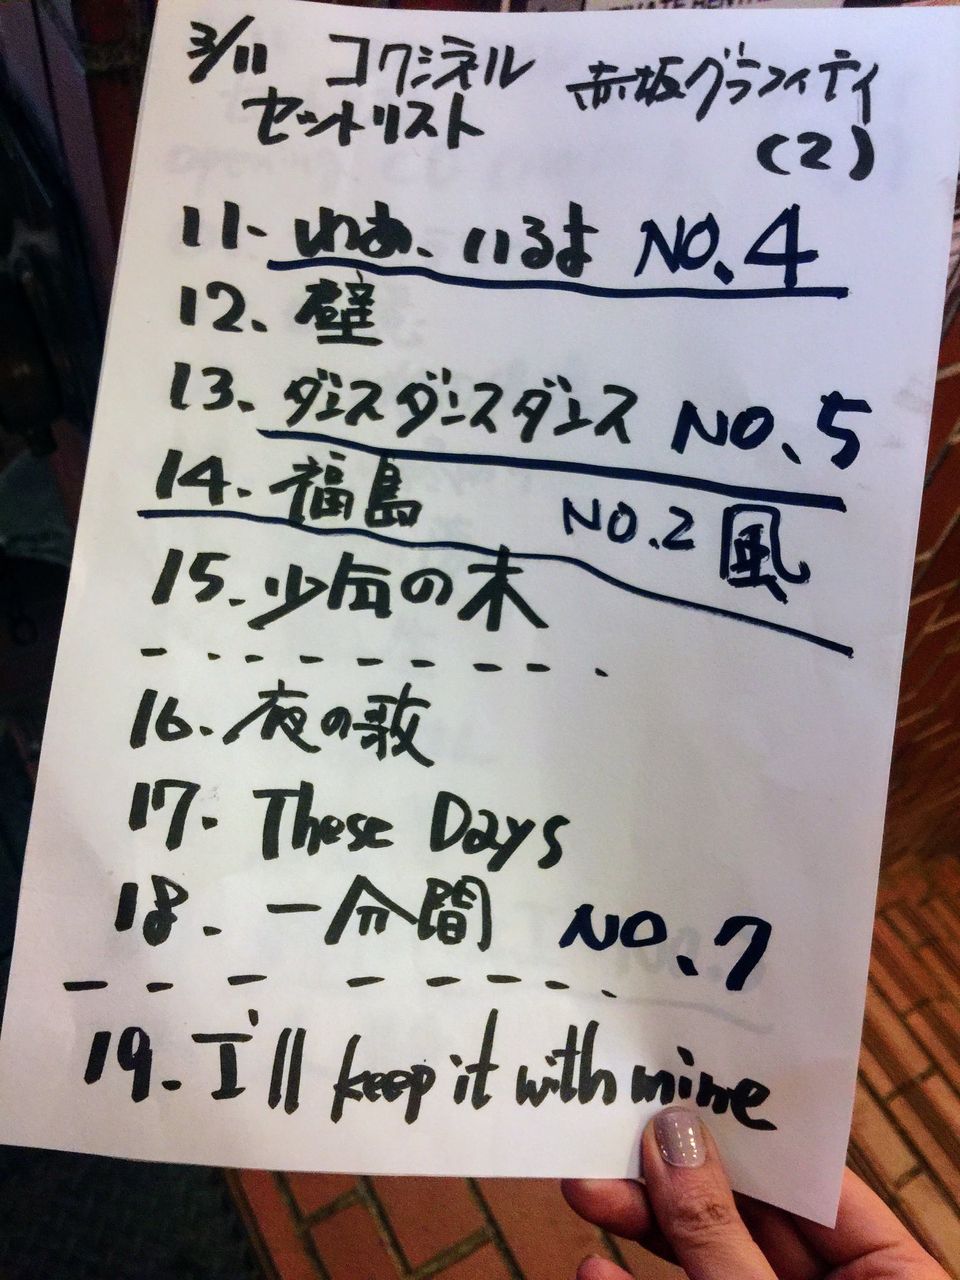 3/11 コクシネル 赤坂グラフィティ
セットリスト (2)
11. わあ、いるよ NO.4
12. 壁
13. ダンスダンスダンス NO.5
14. 福島 NO.2 風
15. 少年の木
16. 夜の歌
17. These Days
18. 一分間 NO.7
19. I'll keep it with mine